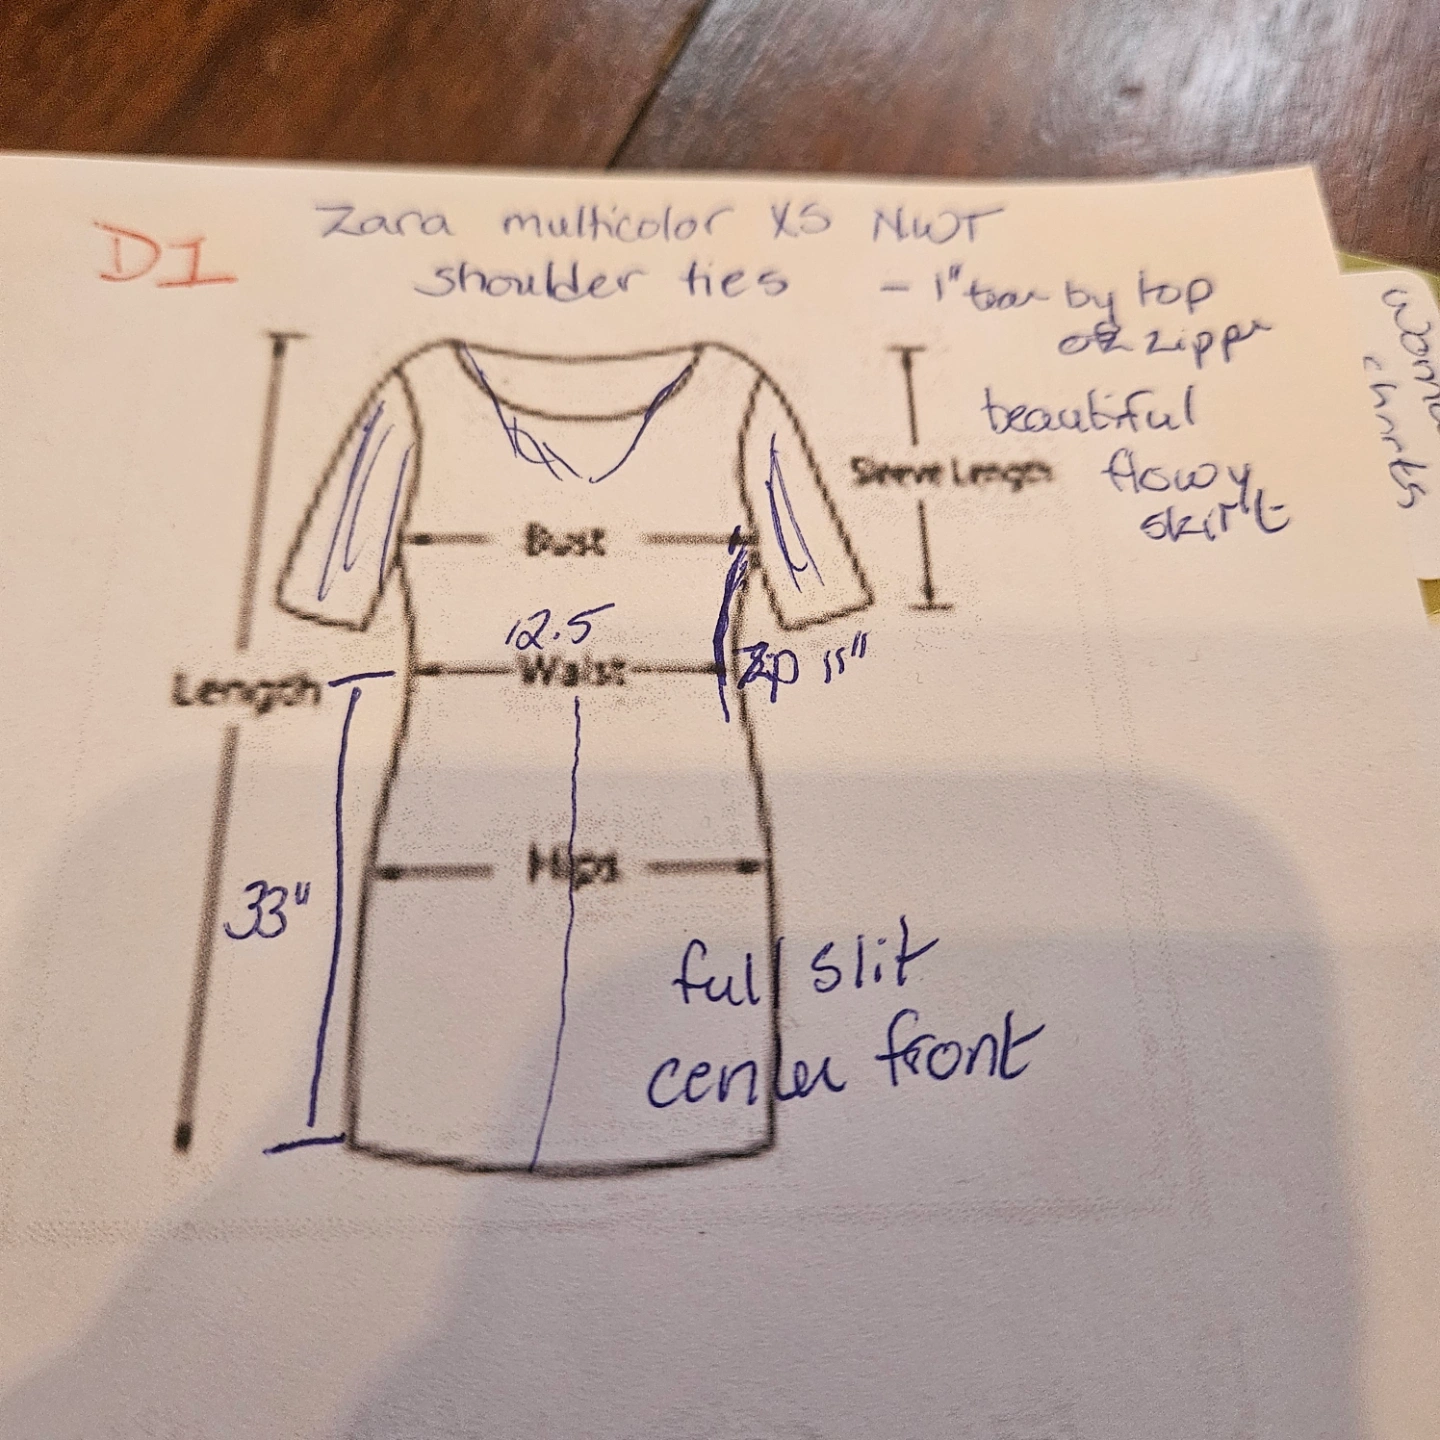 D1
Zara multicolor XS NWT
shoulder ties
- 1" tear by top
of zipper
beautiful
flowy
skirt
Sleeve Length
Bust
12.5
Waist
Zip 11"
Length
Hips
33"
full slit
center front
charts